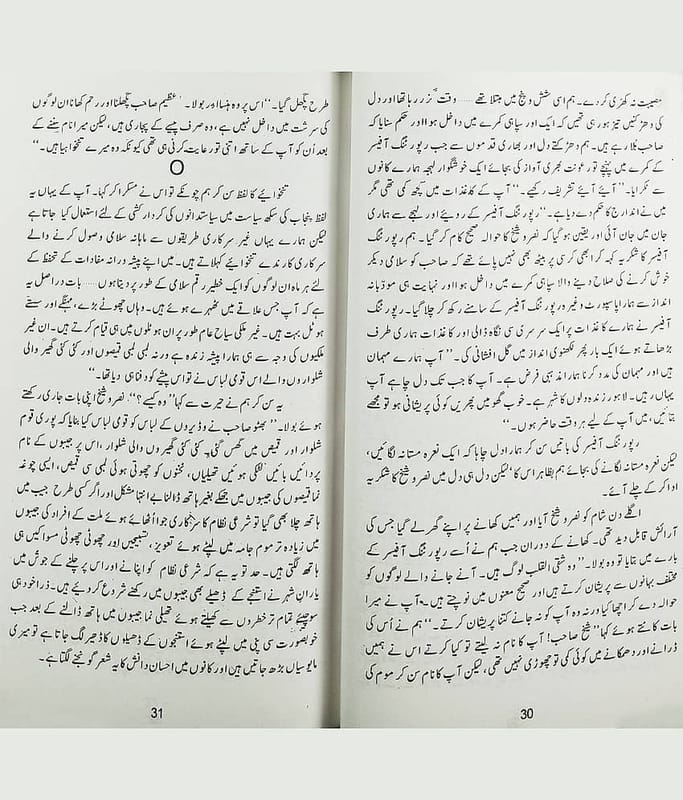 مصیبت نہ کھڑی کر دے۔ ہم اسی شش و پنج میں مبتلا تھے ...... وقت گزر رہا تھا اور دل
کی دھڑکنیں تیز ہو رہی تھیں کہ ایک اور سپاہی کمرے میں داخل ہوا اور حکم سنایا کہ
صاحب بُلا رہے ہیں۔ ہم دھڑکتے دل اور بھاری قدموں سے جب رپورٹنگ آفیسر
کے کمرے میں پہنچے تو رعونت بھری آواز کی بجائے ایک خوشگوار لہجہ ہمارے کانوں
سے ٹکرایا۔ ''آیئے آیئے تشریف رکھیے۔'' آپ کے کاغذات میں کچھ کمی تھی مگر
میں نے اندراج کا حکم دے دیا ہے۔'' رپورٹنگ آفیسر کے رویے اور لہجے سے ہماری
جان میں جان آئی اور یقین ہو گیا کہ نصرو شیخ کا حوالہ صحیح کام کر گیا۔ ہم رپورٹنگ
آفیسر کا شکریہ کہہ کر ابھی کرسی پر بیٹھ بھی نہیں پائے تھے کہ صاحب کو سلامی دیکر
خوش کرنے کی صلاح دینے والا سپاہی کمرے میں داخل ہوا اور نہایت ہی مودبانہ
انداز سے ہمارا پاسپورٹ وغیرہ رپورٹنگ آفیسر کے سامنے رکھ کر چلا گیا۔ رپورٹنگ
آفیسر نے ہمارے کاغذات پر ایک سرسری سی نگاہ ڈالی اور کاغذات ہماری طرف
بڑھاتے ہوئے ایک بار پھر لکھنوی انداز میں گل افشانی کی۔ ''آپ ہمارے مہمان
ہیں اور مہمان کی مدد کرنا ہمارا مذہبی فرض ہے۔ آپ کا جب تک دل چاہے آپ
یہاں رہیں۔ لاہور زندہ دلوں کا شہر ہے۔ خوب گھومیں پھریں کوئی پریشانی ہو تو مجھے
بتائیں، میں آپ کے لیے ہر وقت حاضر ہوں۔''
رپورٹنگ آفیسر کی باتیں سن کر ہمارا دل چاہا کہ ایک نعرہ مستانہ لگائیں،
لیکن نعرہ مستانہ لگانے کی بجائے ہم بظاہر اس کا لیکن دل ہی دل میں نصرو شیخ کا شکریہ
ادا کر کے چلے آئے۔
اگلے دن شام کو نصرو شیخ آیا اور ہمیں کھانے پر اپنے گھر لے گیا جس کی
آرائش قابل دید تھی۔ کھانے کے دوران جب ہم نے اُسے رپورٹنگ آفیسر کے
بارے میں بتایا تو وہ بولا۔ ''وہ شقی القلب لوگ ہیں۔ آنے جانے والے لوگوں کو
مختلف بہانوں سے پریشان کرتے ہیں اور صحیح معنوں میں نوچتے ہیں۔ آپ نے میرا
حوالہ دے کر اچھا کیا ورنہ وہ آپ کو نہ جانے کتنا پریشان کرتے۔'' ہم نے اُس کی
بات کاٹتے ہوئے کہا ''شیخ صاحب! آپ کا نام نہ لیتے تو کیا کرتے اس نے ہمیں
ڈرانے اور دھمکانے میں کوئی کمی تو چھوڑی نہیں تھی، لیکن آپ کا نام سن کر موم کی
30
طرح پگھل گیا۔'' اس پر وہ ہنسا اور بولا۔ ''عظیم صاحب پگھلنا اور رحم کھانا ان لوگوں
کی سرشت میں داخل نہیں ہے، وہ صرف پیسے کے پجاری ہیں، لیکن میرا نام سننے کے
بعد اُن کو آپ کے ساتھ اتنی تو رعایت کرنی ہی تھی کیونکہ وہ میرے تنخواہیا ہیں۔''
O
تنخواہیے کا لفظ سن کر ہم چونکے تو اس نے مسکرا کر کہا۔ آپ کے یہاں یہ
لفظ پنجاب کی سکھ سیاست میں سیاستدانوں کی کردار کشی کے لئے استعمال کیا جاتا ہے
لیکن ہمارے یہاں غیر سرکاری طریقوں سے ماہانہ سلامی وصول کرنے والے
سرکاری کارندے تنخواہیے کہلاتے ہیں۔ میں اپنے پیشہ ورانہ مفادات کے تحفظ کے
لئے ہر ماہ ان لوگوں کو ایک خطیر رقم سلامی کے طور پر دیتا ہوں ...... بات دراصل یہ
ہے کہ آپ جس علاقے میں ٹھہرے ہوئے ہیں۔ وہاں چھوٹے بڑے، مہنگے اور سستے
ہوٹل بہت ہیں۔ غیر ملکی سیاح عام طور پر ان ہوٹلوں میں ہی قیام کرتے ہیں۔ ان غیر
ملکیوں کی وجہ سے ہی ہمارا پیشہ زندہ ہے ورنہ لمبی لمبی قمیضوں اور کئی کئی گھیر والی
شلواروں والے اس قومی لباس نے تو اس پیشے کو دفنا ہی دیا تھا۔''
یہ سن کر ہم نے حیرت سے کہا ''وہ کیسے؟'' نصرو شیخ اپنی بات جاری رکھتے
ہوئے بولا۔ ''بھٹو صاحب نے وڈیروں کے لباس کو قومی لباس کیا بنایا کہ پوری قوم
شلوار اور قمیض میں گھس گئی۔ کئی کئی گھیروں والی شلوار، اس پر جیبوں کے نام
پر دائیں بائیں لٹکی ہوئیں تھیلیاں، ٹخنوں کو چھوتی ہوئی لمبی سی قمیض، ایسی چوغہ
نما قمیضوں کی جیبوں میں جھکے بغیر ہاتھ ڈالنا بے انتہا مشکل اور اگر کسی طرح جیب میں
ہاتھ چلا بھی گیا تو شرعی نظام کا سرکاری جوا اُٹھائے ہوئے ملت کے افراد کی جیبوں
میں زیادہ تر موم جامہ میں لپٹے ہوئے تعویز، تسبیحیں اور چھوٹی چھوٹی مسواکیں ہی
ہاتھ لگتی ہیں۔ حد تو یہ ہے کہ شرعی نظام کو اپنانے اور اس پر چلنے کے جوش میں
یاران شہر نے استنجے کے ڈھیلے بھی جیبوں میں رکھنے شروع کر دیئے ہیں۔ ذرا خود ہی
سوچئے تمام تر خطروں سے کھیلتے ہوئے تھیلی نما جیبوں میں ہاتھ ڈالنے کے بعد جب
خوبصورت سی پنی میں لپٹے ہوئے استنجوں کے ڈھیلوں کا ڈھیر لگ جاتا ہے تو میری
مایوسیاں بڑھ جاتیں ہیں اور کانوں میں احسان دانش کا یہ شعر گونجنے لگتا ہے۔
31